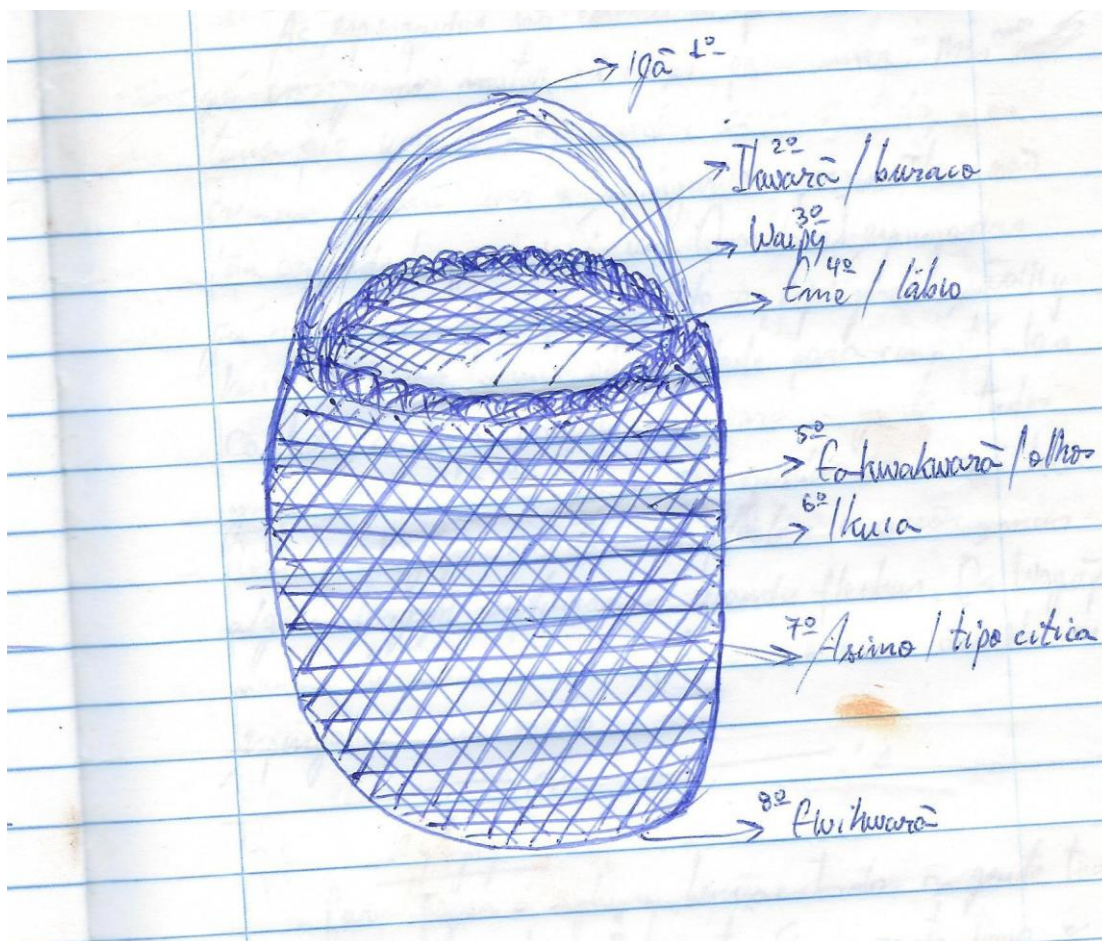 Igã 1º
2º
Ikwarã / buraco
3º
Waipy
4º
Eme / lábio
5º
Eakwakwarã / olhos
6º Ikuia
7º Asimo / tipo citica
8º Ewikwarã